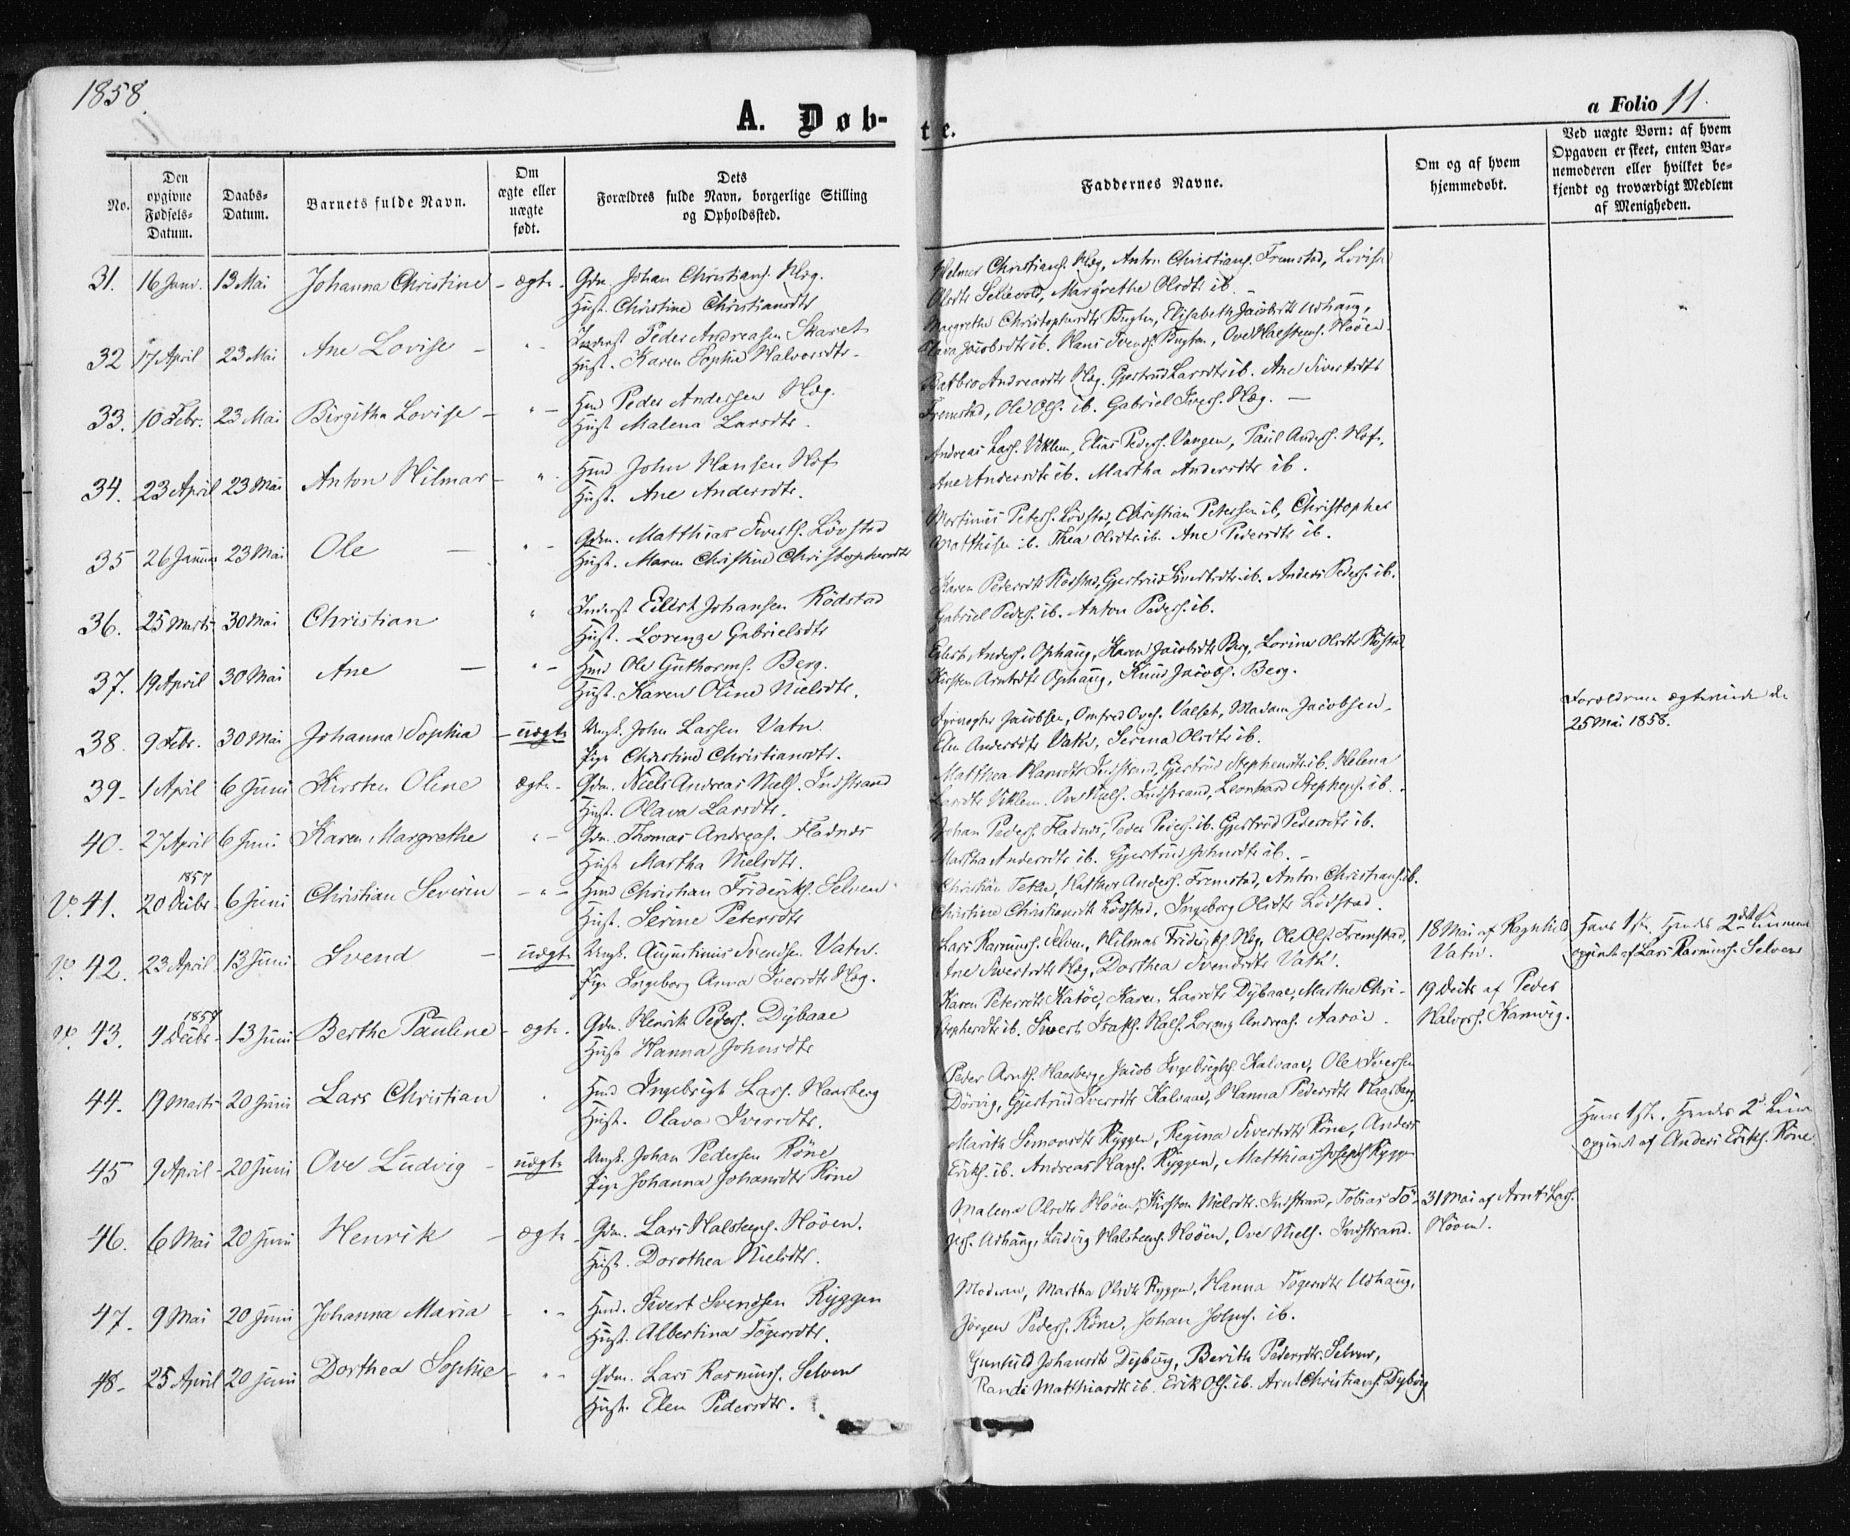 1858.
A. Døb-
te.
a Folio 11.
No.
Den opgivne Fødsels-Datum.
Daabs-Datum.
Barnets fulde Navn.
Om ægte eller uægte født.
Dets Forældres fulde Navn, borgerlige Stilling og Opholdssted.
Faddernes Navne.
Om og af hvem hjemmedøbt.
Ved uægte Børn: af hvem Opgaven er skeet, enten Barnemoderen eller hvilket bekjendt og troværdigt Medlem af Menigheden.
31. 16 Janv. 13 Mai Johanna Christine - ægte - Gdm. Johan Christians. Hæg.
Hust. Christine Christiansdtr
Helmer Christians. Hæg, Anton Christians. Fremstad, Lovise
Olsdtr Selevold, Margrethe Olsdtr ib.
32 17 April 23 Mai Ane Lovise - Inderst Peder Andreasen Skaret
Hust. Karen Sophie Halvorsdtr.
Margrethe Christophersdtr, Elisabeth Jacobsdtr Udhaug,
Olava Jacobsdtr ib. Hans Svends., Ove Halstens. Høøen
33. 10 Febr. 23 Mai Birgitha Lovise - " - Hmd Peder Andersen Hæg.
Hust Malena Larsdtr.
Barbro Andreasdtr Hæg. Gjertrud Larsdtr ib. Ane Sivertsdtr
Fremstad, Ole Ols. ib. Gabriel Hæg. -
34. 23 April 23 Mai Anton Hilmar - " Hmd. John Hansen Hof
Hust. Ane Andersdtr.
Andreas Lars. Viklem, Elias Peders. Vangen, Paul Anders. Hof,
Ane Andersdtr ib. Martha Andersdtr ib.
35 26 Januar 23 Mai Ole - " - Gdm. Matthias Siverts. Lövstad
Hust. Maren Christine Christophersdtr
Mortinus Peters. Lövstad, Christian Petersen ib, Christopher
Matthisen ib. Thea Olsdtr ib. Ane Pedersdtr ib.
36. 25 Marts 30 Mai Christian " Inderst Eilert Johansen Rödstad
Hust. Lorenze Gabrielsdtr
Karen Pedersdtr Rödstad, Gjertrud Sivertsdtr ib. Anders Peders. ib.
Gabriel Peders. ib. Anton Peders. ib.
37. 19 April 30 Mai Ane - " - Hmd Ole Guthorms. Berg.
Hust. Karen Oline Nielsdtr.
Eilert Anders. Ophaug, Karen Jacobsdtr Berg, Lorine Olsdtr
Kirsten Arntsdtr Ophaug, Knud Jacobs. Berg.
38. 9 Febr. 30 Mai Johanna Sophia - uægte Ungk. John Larsen Vatn
Pige Christine Christiansdtr.
Jacobsen, Omfred Oves. Valset, Madam Jacobsen,
Elen Andersdtr Vatn, Serena Olsdtr ib.
Forældrene ægteviede den
25 Mai 1858.
39 - 1 April 6 Juni Kirsten Oline ægte - Gdm. Niels Andreas Niels. Indstrand
Hust. Olava Larsdtr.
Matthea Hansdtr Indstrand, Gjertrud Stephensdtr ib. Helena
Larsdtr Viklem. Ove Niels. Indstrand, Leonhard Stephens. ib.
40. 27 April 6 Juni Karen Margrethe " - Gdm. Thomas Andreas. Fladnes
Hust Martha Nielsdtr.
Johan Peders. Fladnes, Peder Peders. ib. Gjertrud Pedersdtr ib.
Martha Andersdtr ib. Gjertrud Johnsdtr ib. -
Vc. 41. 20 Decbr 1857 6 Juni Christian Severin - " - Hmd Christian Frideriks. Selven
Hust. Serine Petersdtr
Christian, Anders. Fremstad, Anton Christians. ib.
Christine Christiansdtr Lödstad. Ingeborg Olsdtr Lödstad.
Vc 42. 23 April 13 Juni Svend - uægte Ungk. Augustinus Svendsen Vatn.
Pige Ingeborg Anna Iversdtr Hæg.
Lars Rasmus. Selven, Hilmar Frideriks. Hæg, Ole Ols. Fremstad,
Ane Sivertsdtr Hæg, Dorthea Svendsdtr Vatn.
18 Mai af Ragnhild
Vatn.
Hans 1ste. Hendes 2det Lüiemaal
opgivet af Lars Rasmus. Selven
Vc. 43. 4 Decbr 1857 13 Juni Berthe Pauline - ægte. Gdm. Henrik Peders. Dÿbaae
Hust Hanna Johnsdtr
Karen Petersdtr Katöe, Karen Larsdtr Dÿbaae, Marthe Chri-
stophersdtr ib. Sivert Isaks. Hals. Lorenz Andreas. Aaröe.
19 Decbr af Peder
Halvors. Kamvig.
44. 19 Marts 20 Juni Lars Christian Hmd Ingebrigt Lars. Haasberg
Hust. Olava Iversdtr.
Peder Arnts. Haasberg, Jacob Ingebrigts. Kalsaae, Ole Iversen
Dörvig, Gjertrud Iversdtr Kalsaae, Hanna Pedersdtr Haasberg
45 9 April - 20 Juni Ove Ludvig - uægte Ungk. Johan Pedersen Röne
Pige Johanna Johansdtr Röne
Marith Simonsdtr Ryggen, Regina Sivertsdtr Röne, Anders
Eriks. ib. Andreas Hans. Ryggen, Matthias Josephs. Rygge
Hans 1ste. Hendes 2d Lüie
opgivet af Anders Eriks. Röne
46. 6 Mai 20 Juni Henrik - ægte - Gdm. Lars Halstens. Höven.
Hust. Dorothea Nielsdtr.
Malena Olsdtr Höven, Kirsten Nielsdtr. Indstrand, Tobias Tö-
gers. Udhaug, Ludvig Halstens. Höven, Ove Niels. Indstrand.
31 Mai af Arnt Lars.
Höven.
47. 9 Mai 20 Juni Johanna Maria " - Hmd. Sivert Svendsen Ryggen
Hust. Albertina Tögersdtr.
Moderen, Martha Olsdtr Ryggen, Hanna Tögersdtr Udhaug,
Jörgen Peders. Röne, Johan Johns. ib.
48 - 25 April 20 Juni Dorthea Sophie - " - Gdm. Lars Rasmus. Selven
Hust. Elen Pedersdtr.
Gunhild Johansdtr Dyburg, Berith Pedersdtr Selven,
Randi Matthiasdtr ib. Erik Ols. ib. Arnt Christians. Dyburg